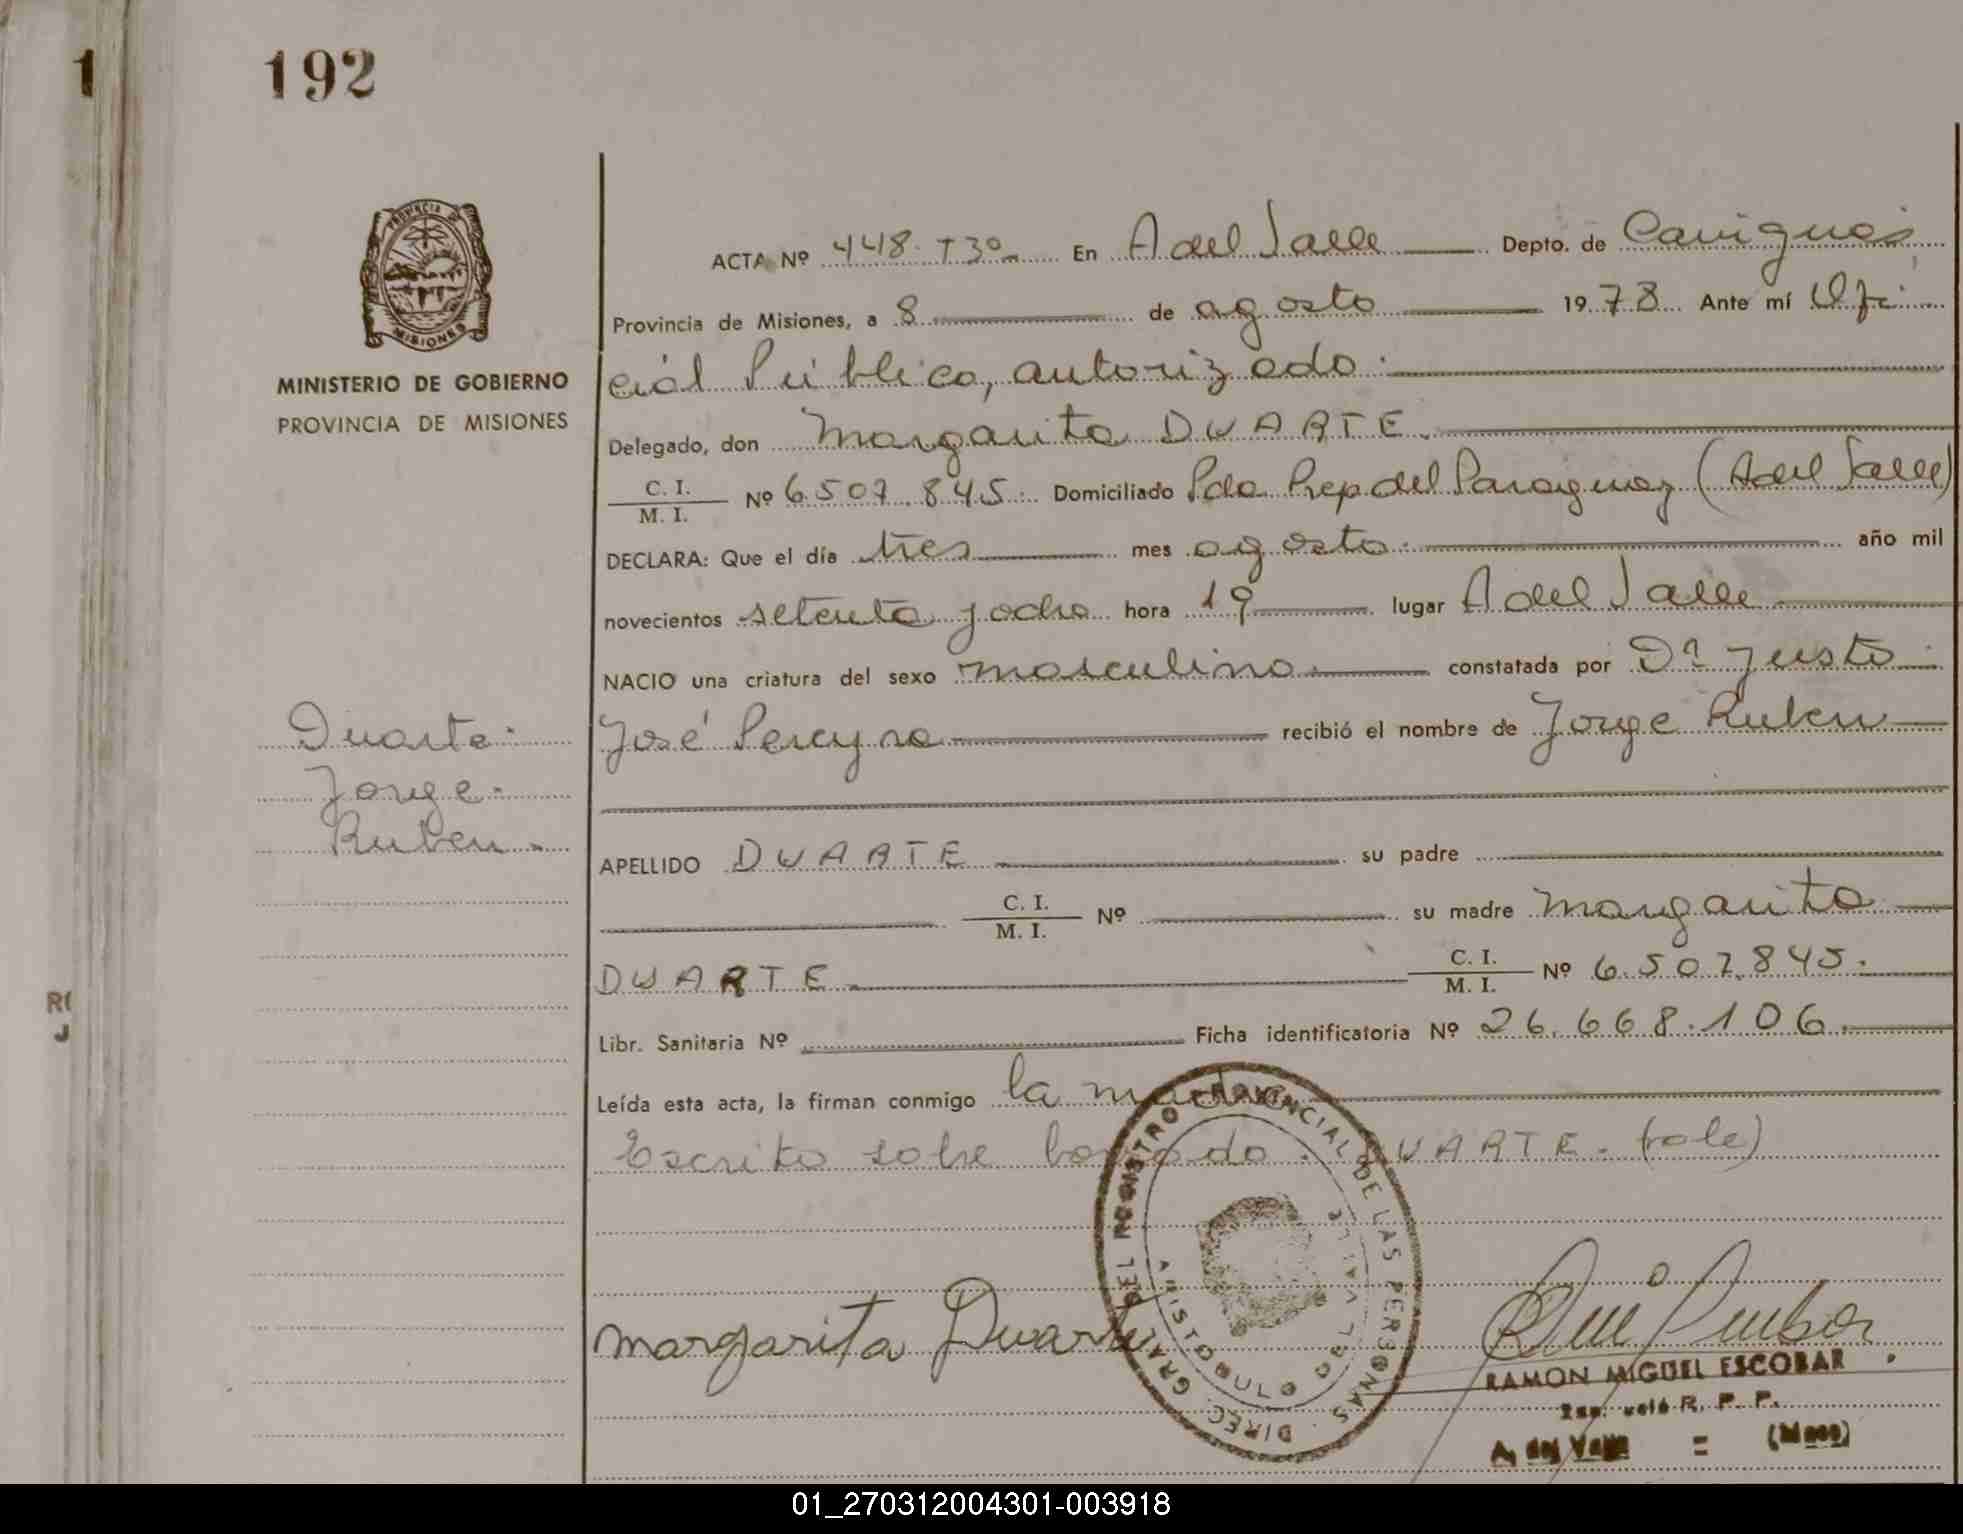 1
192
PROVINCIA DE
MISIONES
MINISTERIO DE GOBIERNO
PROVINCIA DE MISIONES
ACTA Nº 448. T3º En A del Valle Depto. de Cainguás
Provincia de Misiones, a 8 de agosto 1978 Ante mí Ofi
cial Público, autorizado.
Delegado, don Margarita DUARTE.
C. I.
M. I.
Nº 6.507.845. Domiciliado Pdo Rep del Paraguay (A del Valle)
DECLARA: Que el día tres mes agosto. año mil
novecientos setenta y ocho hora 19 lugar A del Valle
NACIO una criatura del sexo masculino constatada por Dr Justo
José Pereyra recibió el nombre de Jorge Ruben
Duarte.
Jorge.
Ruben.
APELLIDO DUARTE su padre
C. I.
M. I.
Nº su madre Margarita
DUARTE C. I.
M. I.
Nº 6.507.845.
Libr. Sanitaria Nº Ficha identificatoria Nº 26.668.106.
Leída esta acta, la firman conmigo la madre
Escrito sobre borrado. DUARTE. (vale)
DIREC. GRAL. DEL REGISTRO PROVINCIAL DE LAS PERSONAS
ARISTOBULO DEL VALLE
Margarita Duarte
RAMON MIGUEL ESCOBAR
R. P. P.
A. del Valle = (Mnes)
01_270312004301-003918